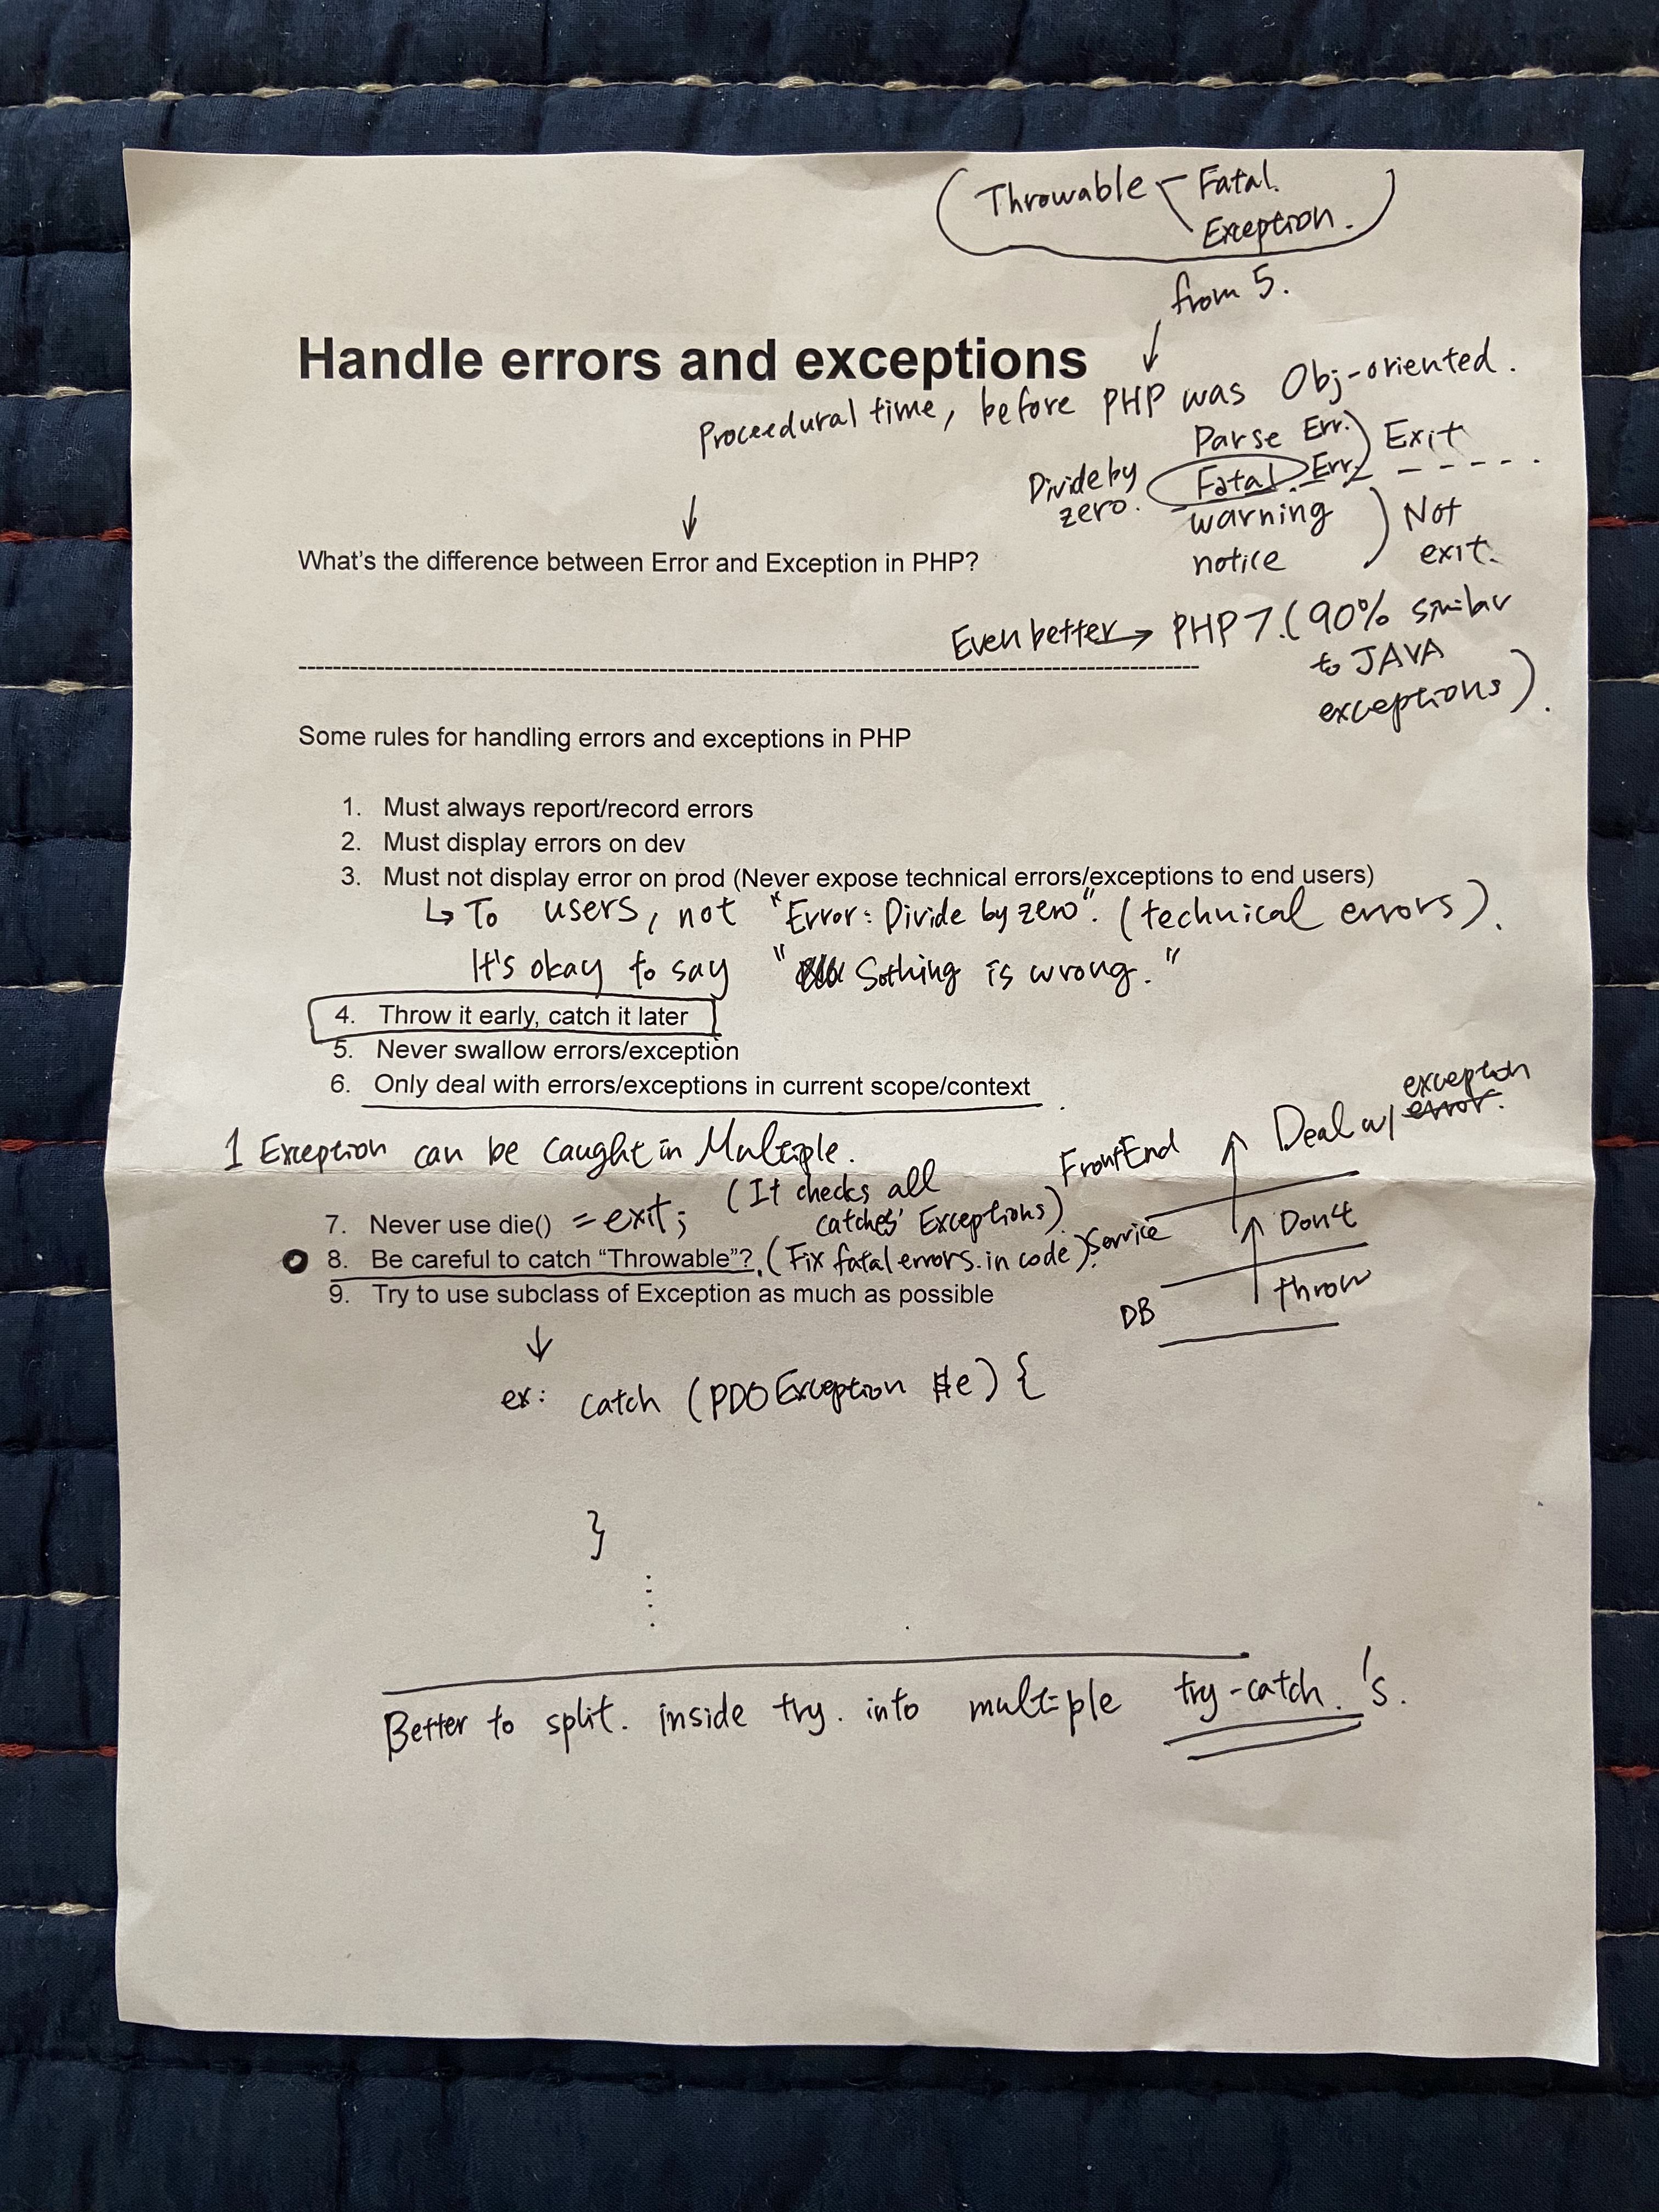 (Throwable Fatal.
Exception.)
from 5.
Handle errors and exceptions
Proceedural time, before PHP was Obj-oriented.
Parse Err.) Exit
Divide by zero. Fatal. Err.
warning
notice
) Not exit.
What's the difference between Error and Exception in PHP?
Even better → PHP 7. (90% similar
to JAVA
exceptions).
Some rules for handling errors and exceptions in PHP
1. Must always report/record errors
2. Must display errors on dev
3. Must not display error on prod (Never expose technical errors/exceptions to end users)
↳ To users, not "Error: Divide by zero". (technical errors).
It's okay to say "Sothing is wrong."
4. Throw it early, catch it later
5. Never swallow errors/exception
6. Only deal with errors/exceptions in current scope/context
1 Exception can be caught in Multiple.
7. Never use die() = exit; (It checks all
catches' Exceptions)
8. Be careful to catch “Throwable”? (Fix fatal errors. in code).
9. Try to use subclass of Exception as much as possible
FrontEnd Deal w/ exception
error.
Service Don't
DB throw
ex: catch (PDOException $e) {
}
Better to split. inside try. into multiple try-catch.'s.